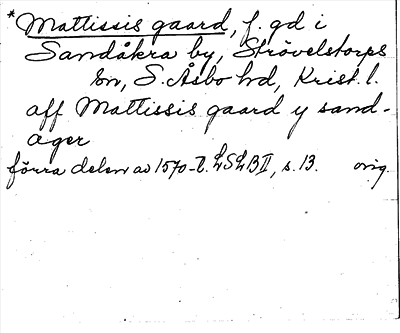 *Mattissis gaard, f. gd i
Sandåkra by, Strövelstorps
sn, S. Åsbo hd, Krist. l.
aff Mattissis gaard y sand-
ager
förra delen av 1570-t. LSLB II, s. 13. orig.